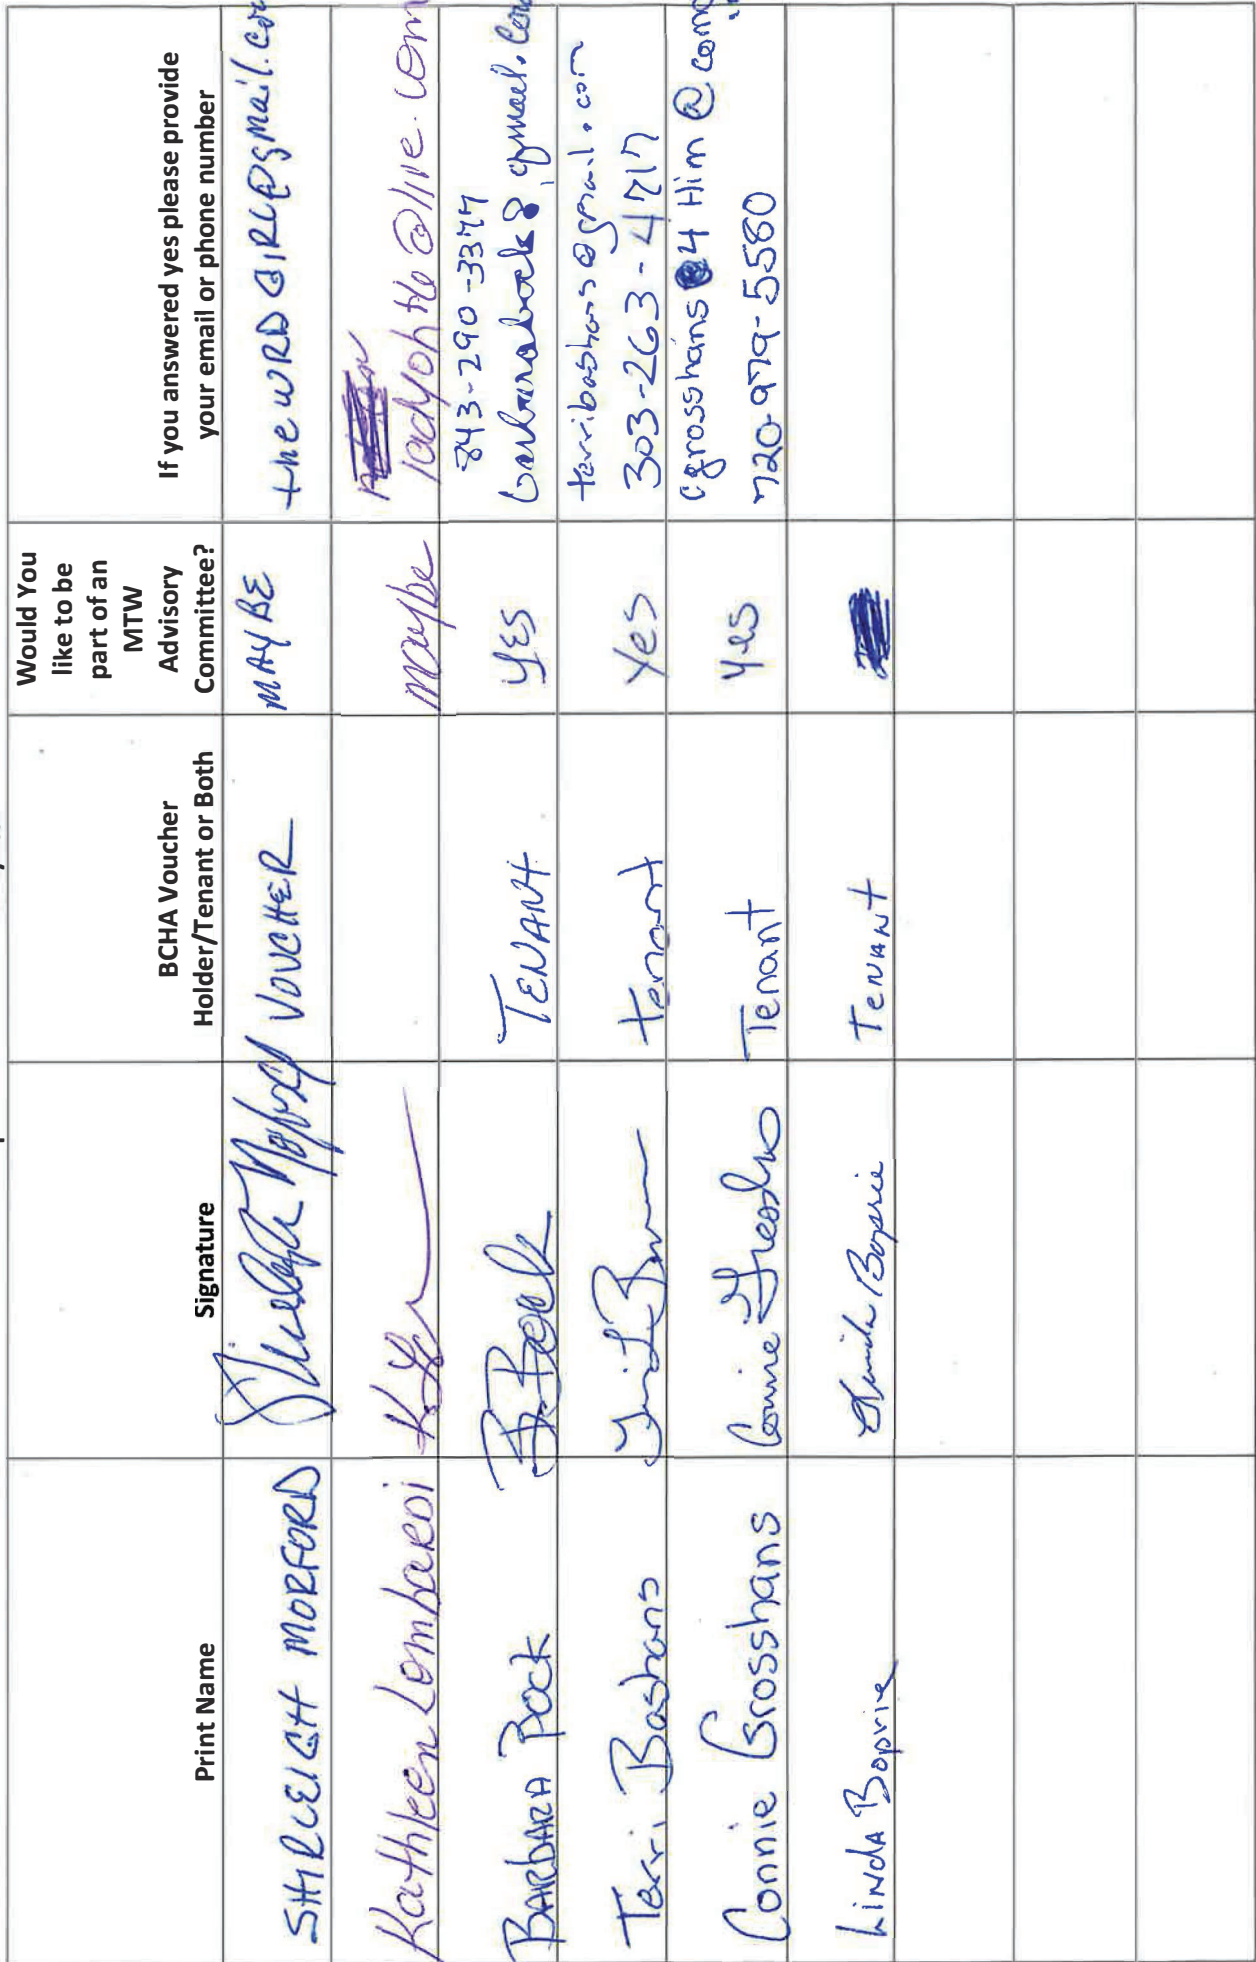 Print Name
Signature
BCHA Voucher
Holder/Tenant or Both
Would You
like to be
part of an
MTW
Advisory
Committee?
If you answered yes please provide
your email or phone number
SHIRLEIGH MORFORD
VOUCHER
MAYBE
thewRDGIRL@gmail.com
Kathleen Lombardi
maybe
ladyohtto@live.com
BARBARA BOCK
B Bock
TENANT
YES
843-290-3377
barbarabock8,@gmail.com
Terri Bashans
tenant
Yes
terribashans@gmail.com
303-263-4717
Connie Grosshans
Connie
Tenant
Yes
cgrosshans 4 Him @ com
720-979-5580
LINdA Boprie
Linda Boprie
TeNANT